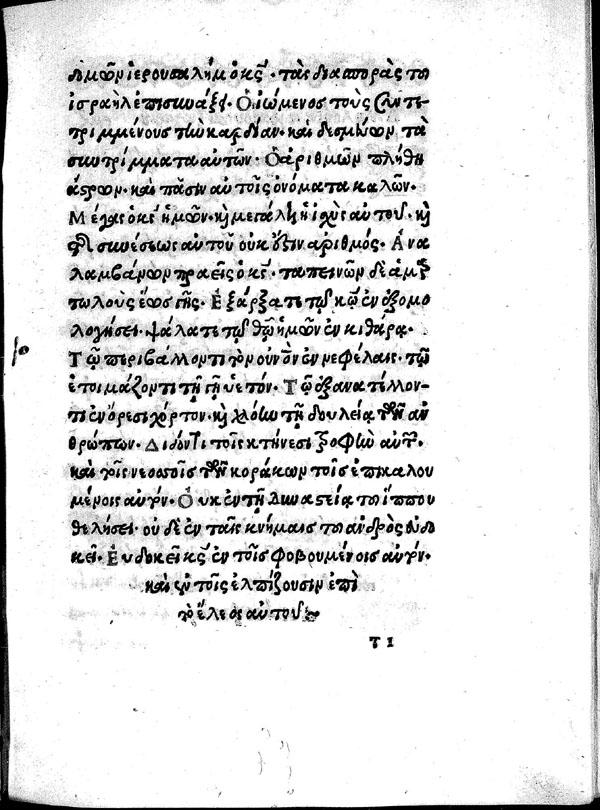 δομῶν ἱερουσαλὴμ ὁ κς̄· τὰς διασπορὰς τοῦ
ἰσραὴλ ἐπισυνάξει· Ὁ ἰώμενος τοὺς συντε-
τριμμένους τὴν καρδίαν· καὶ δεσμεύων τὰ
συντρίμματα αὐτῶν· Ὁ ἀριθμῶν πλήθη
ἄστρων· καὶ πᾶσιν αὐτοῖς ὀνόματα καλῶν·
Μέγας ὁ κς̄ ἡμῶν· καὶ μεγάλη ἡ ἰσχὺς αὐτοῦ· καὶ
τῆς συνέσεως αὐτοῦ οὐκ ἔστιν ἀριθμός· Ἀνα
λαμβάνων πραεῖς ὁ κς̄· ταπεινῶν δὲ ἁμαρ
τωλοὺς ἕως γῆς· Ἐξάρξατε τῷ κω̄ ἐν ἐξομο
λογήσει· ψάλατε τῷ θω̄ ἡμῶν ἐν κιθάρα·
Τῷ περιβάλλοντι τὸν οὐνον̄ ἐν νεφέλαις· τῷ
ἑτοιμάζοντι τῇ γῇ ὑετόν· Τῷ ἐξανατέλλον-
τι ἐν ὄρεσι χόρτον· καὶ χλόην τῇ δουλεία τῶν ἀν
θρώπων· Διδόντι τοῖς κτήνεσι τροφὴν αὐτῶν·
καὶ τοῖς νεοσσοῖς τῶν κοράκων τοῖς ἐπικαλου
μένοις αὐτόν· Οὐκ ἐν τῇ δυναστεία τοῦ ἵππου
θελήσει· οὐδὲ ἐν ταῖς κνήμαις τοῦ ἀνδρὸς εὐδο
κεῖ· Εὐδοκεῖ κς̄ ἐν τοῖς φοβουμένοις αὐτόν·
καὶ ἐν τοῖς ἐλπίζουσιν ἐπὶ
τὸ ἔλεος αὐτοῦ:~
τ 1